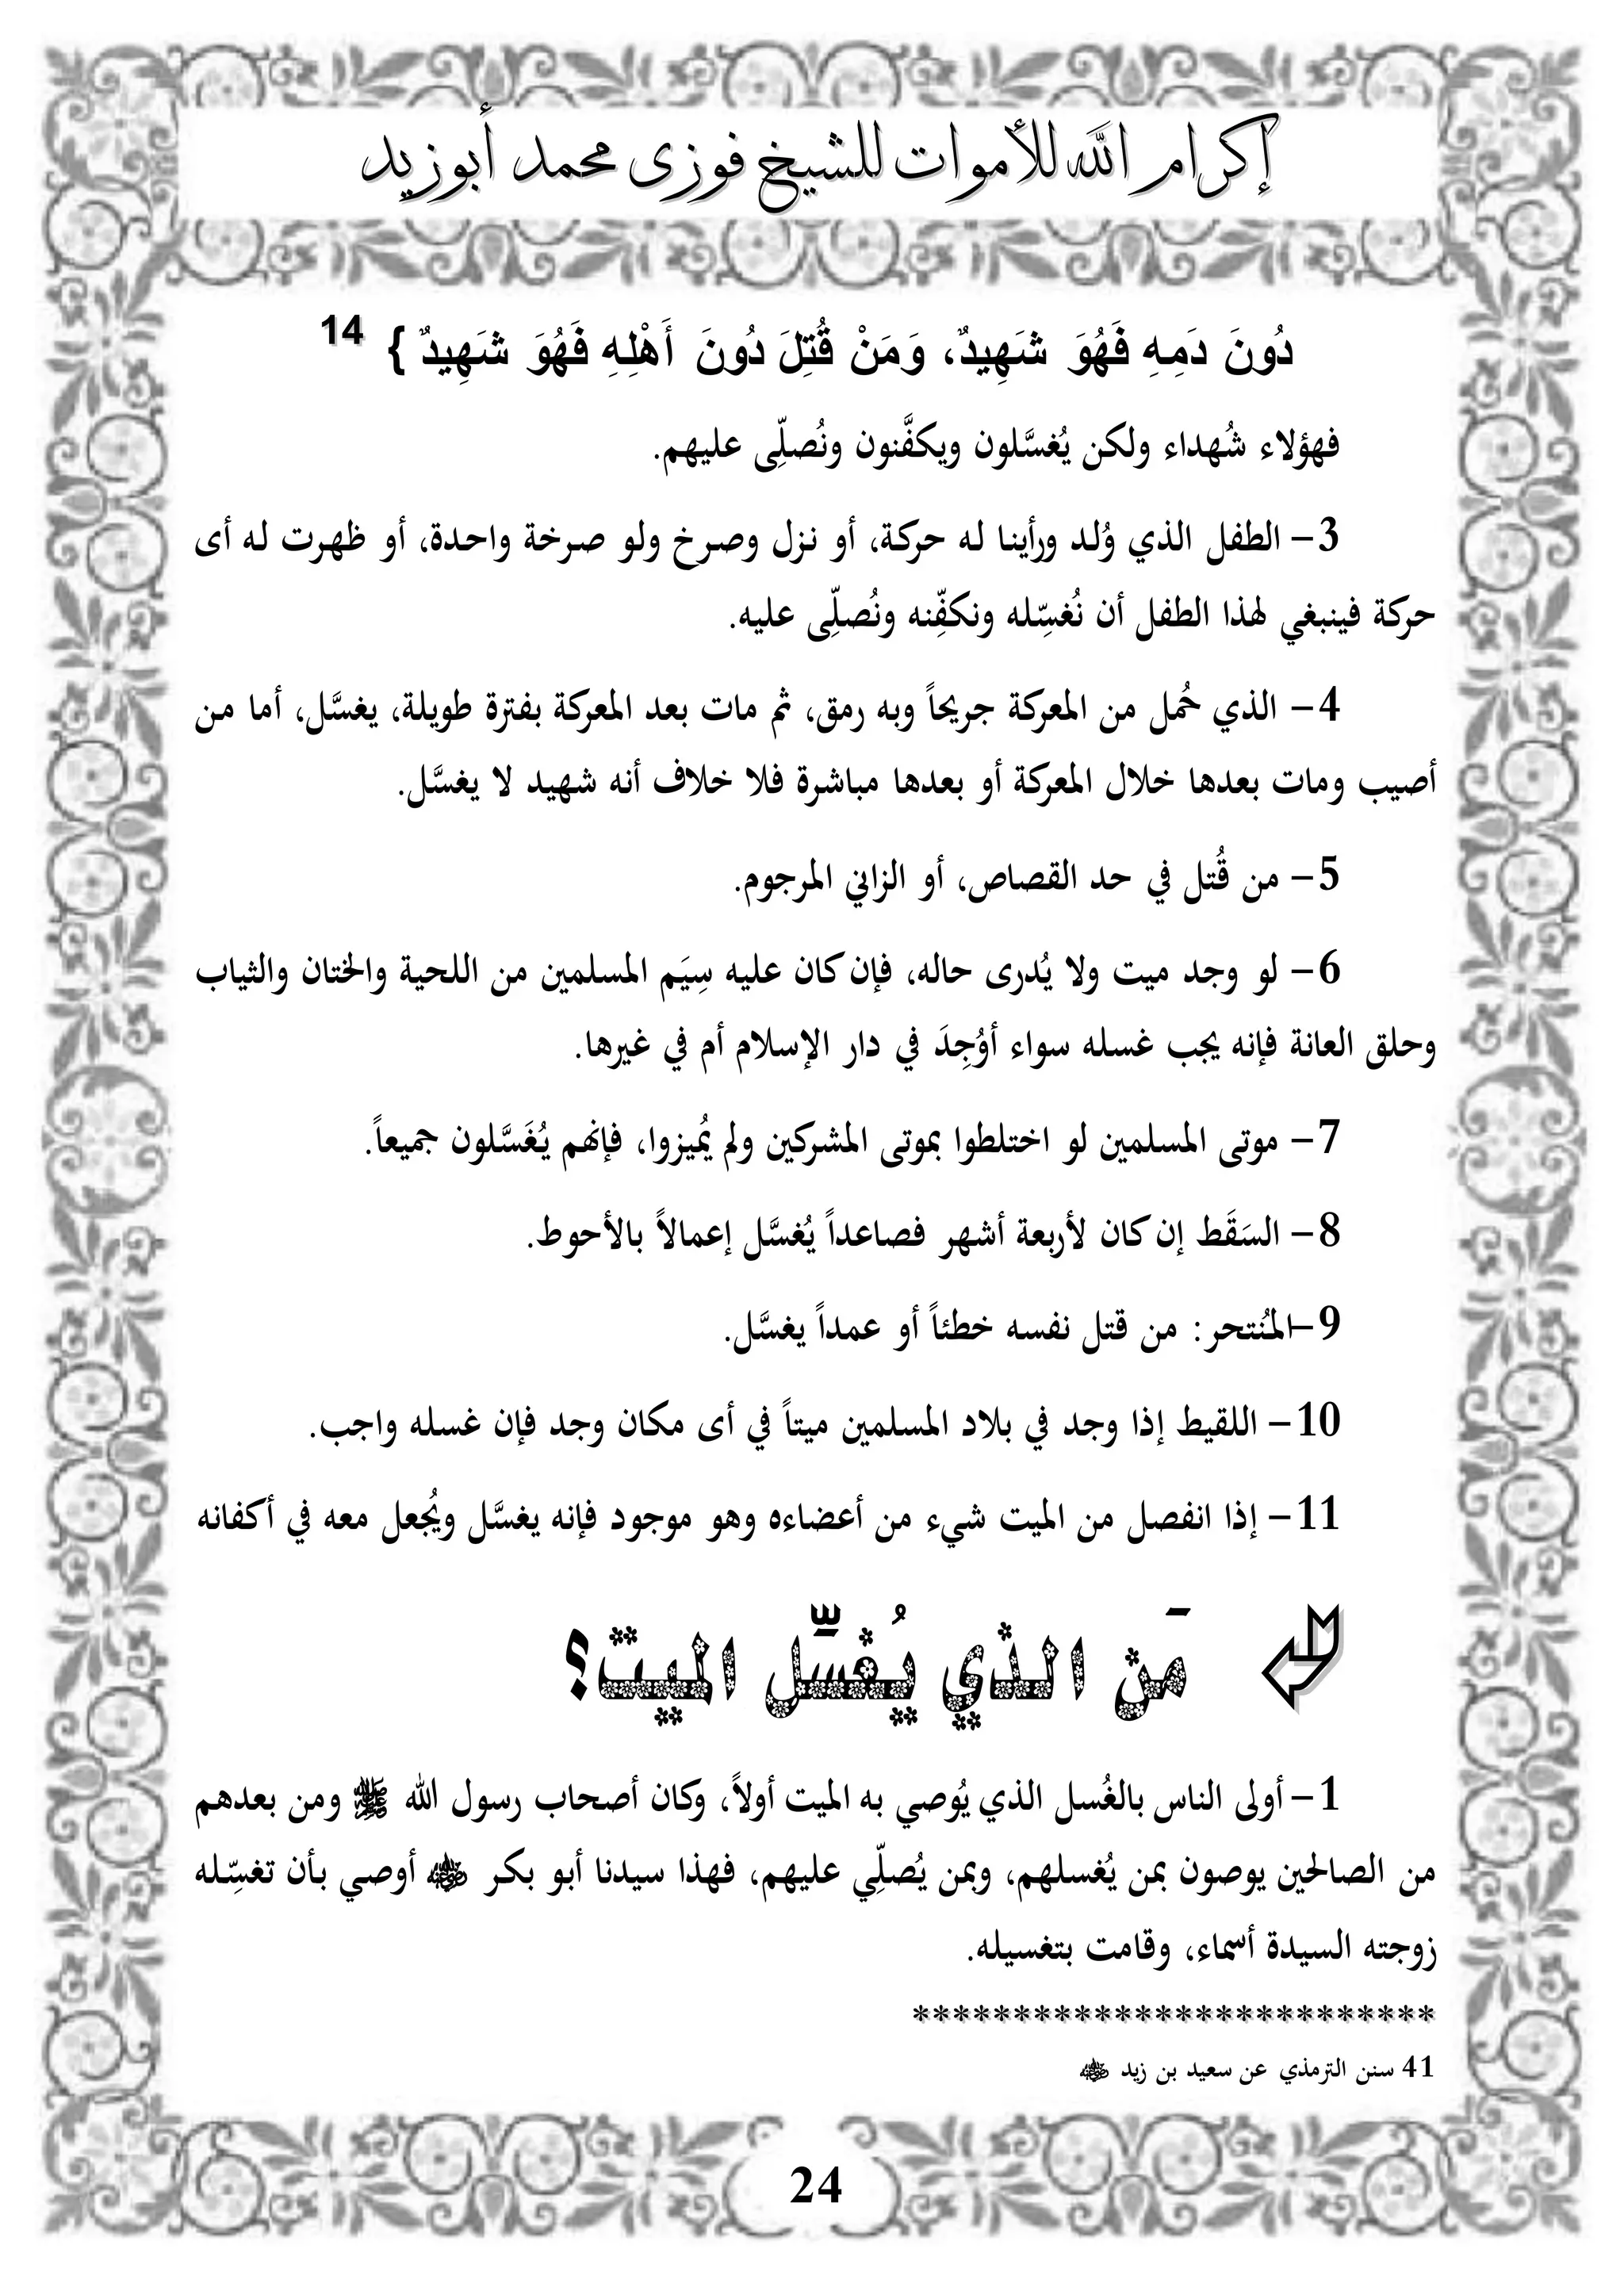 إكرام الله للأموات للشيخ فوزى محمد أبوزيد
دُونَ دَمِهِ فَهُوَ شَهِيدٌ، وَمَنْ قُتِلَ دُونَ أَهْلِهِ فَهُوَ شَهِيدٌ } 14
فهؤلاء شُهداء ولكن يُغسَّلون ويكفَّنون ونُصلِّى عليهم.
3- الطفل الذي وُلد ورأينا له حركة، أو نزل وصرخ ولو صرخة واحدة، أو ظهرت له أى
حركة فينبغي لهذا الطفل أن نُغسِّله ونكفِّنه ونُصلِّى عليه.
4- الذي حُمل من المعركة جريحاً وبه رمق، ثم مات بعد المعركة بفترة طويلة، يغسَّل، أما من
أصيب ومات بعدها خلال المعركة أو بعدها مباشرة فلا خلاف أنه شهيد لا يغسَّل.
5- من قُتل في حد القصاص، أو الزاني المرجوم.
6- لو وجد ميت ولا يُدرى حاله، فإن كان عليه سِيَم المسلمين من اللحية والختان والثياب
وحلق العانة فإنه يجب غسله سواء أوُجِدَ في دار الإسلام أم في غيرها.
7- موتى المسلمين لو اختلطوا بموتى المشركين ولم يُميزوا، فإنهم يُغَسَّلون جميعاً.
8- السَقَط إن كان لأربعة أشهر فصاعداً يُغسَّل إعمالاً بالأحوط.
9-المُنتحر: من قتل نفسه خطئاً أو عمداً يغسَّل.
10- اللقيط إذا وجد في بلاد المسلمين ميتاً في أى مكان وجد فإن غسله واجب.
11- إذا انفصل من الميت شيء من أعضاءه وهو موجود فإنه يغسَّل ويُجعل معه في أكفانه
مَن الذي يُغسِّل الميت؟
1- أولى الناس بالغُسل الذي يُوصي به الميت أولاً، وكان أصحاب رسول الله ﷺ ومن بعدهم
من الصالحين يوصون بمن يُغسلهم، وبمن يُصلِّي عليهم، فهذا سيدنا أبو بكر ﵁ أوصي بأن تغسِّله
زوجته السيدة أسماء، وقامت بتغسيله.
**************************
41 سنن الترمذي عن سعيد بن زيد ﵁
24